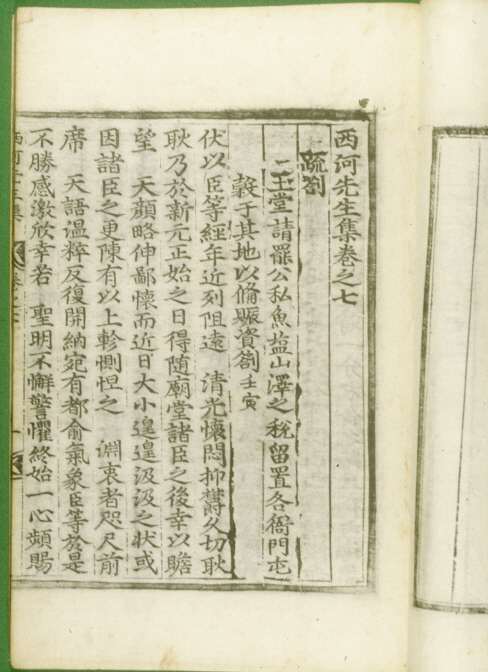 西河先生集卷之七
疏劄
玉堂請罷公私魚塩山澤之稅留置各衙門屯
穀于其地以備賑資劄 壬寅
伏以臣等經年近列阻遠 清光懷悶抑欝久切耿
耿乃於新元正始之日得隨廟堂諸臣之後幸以瞻
望 天顔略伸鄙懷而近日大小遑遑汲汲之狀或
因諸臣之更陳有以上軫惻怛之 淵衷者咫尺前
席 天語溫粹反復開納宛有都俞氣象臣等於是
不勝感激欣幸若 聖明不懈警懼終始一心頻賜
西河先生集 卷之七 一